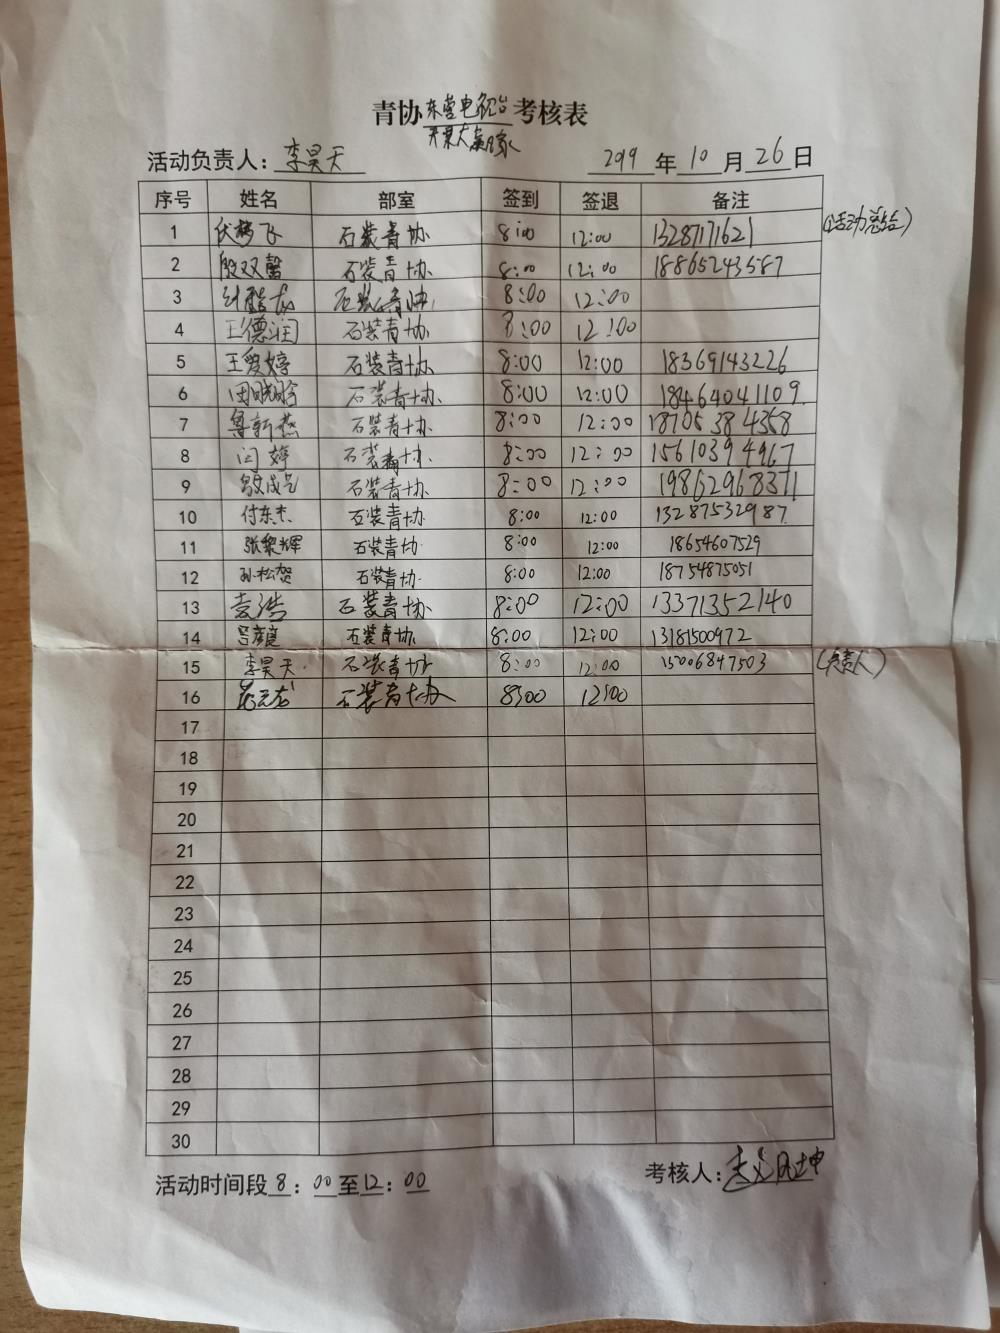 青协东营电视台考核表
开票大赢家
活动负责人：李昊天 2019年10月26日
序号 姓名 部室 签到 签退 备注
1 伏梦飞 石装青协 8:00 12:00 13287171621 (活动总结)
2 殷双馨 石装青协 8:00 12:00 18865243587
3 石装青协 8:00 12:00
4 王德润 石装青协 8:00 12:00
5 王爱婷 石装青协 8:00 12:00 18369143226
6 石装青协 8:00 12:00 18464041109
7 鲁新燕 石装青协 8:00 12:00 18705384358
8 闫婷 石装青协 8:00 12:00 15610394967
9 石装青协 8:00 12:00 19862968371
10 付东杰 石装青协 8:00 12:00 13287532987
11 张黎辉 石装青协 8:00 12:00 18654607529
12 孙松贺 石装青协 8:00 12:00 18754875051
13 袁浩 石装青协 8:00 12:00 13371352140
14 石装青协 8:00 12:00 13181500972
15 李昊天 石装青协 8:00 12:00 15006847503 (负责人)
16 石装青协 8:00 12:00
17
18
19
20
21
22
23
24
25
26
27
28
29
30
活动时间段8：00至12：00 考核人：